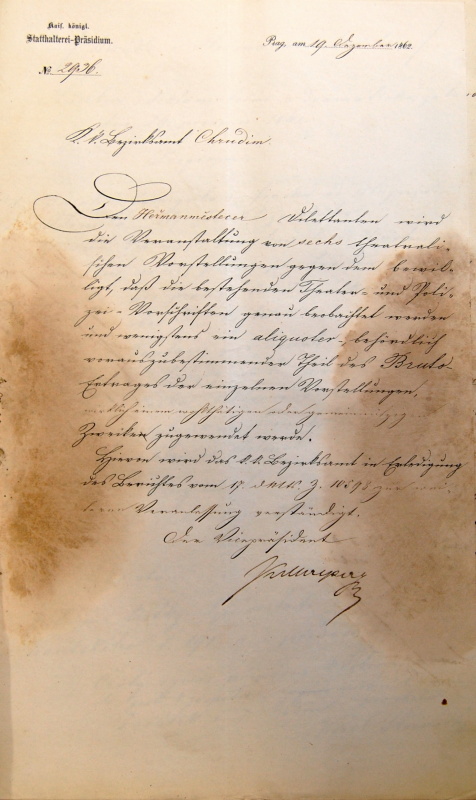 Kais. königl.
Statthalterei-Präsidium.
Prag, am 19. Dezember 1862
No. 2936.
K. k. Bezirksamt Chrudim.
Den Heřmanměstecer Dilettanten wird
die Veranstaltung von sechs theatrali-
schen Vorstellungen gegen dem bewil-
ligt, daß die bestehenden Theater- und Poli-
zei-Vorschriften genau beobachtet werden
und wenigstens ein aliquoter, behördlich
vorauszubestimmender Theil des Brutto-
Ertrages der einzelnen Vorstellungen,
einem wohlthätigen oder gemeinnützig
Zwecken zugewendet werde.
Hievon wird das k. k. Bezirksamt in Erledigung
des Berichtes vom 17. d. Mts. Z. zur wei-
teren Veranlassung verständigt.
Der Vicepräsident